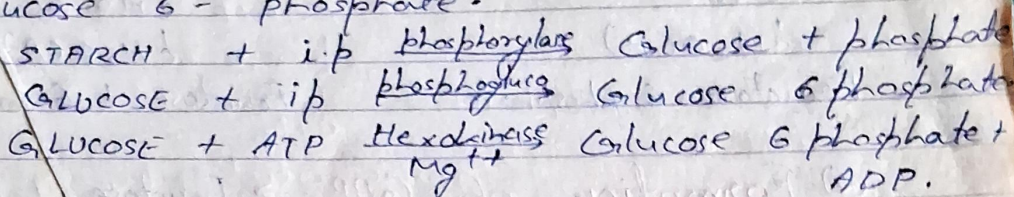 ucose 6 - phosphate.
STARCH + i.p phosphorylass Glucose + phosphate
GLUCOSE + ip phosphogluco Glucose 6 phosphate
GLUCOSE + ATP Hexokinase Glucose 6 phosphate +
Mg++ ADP.